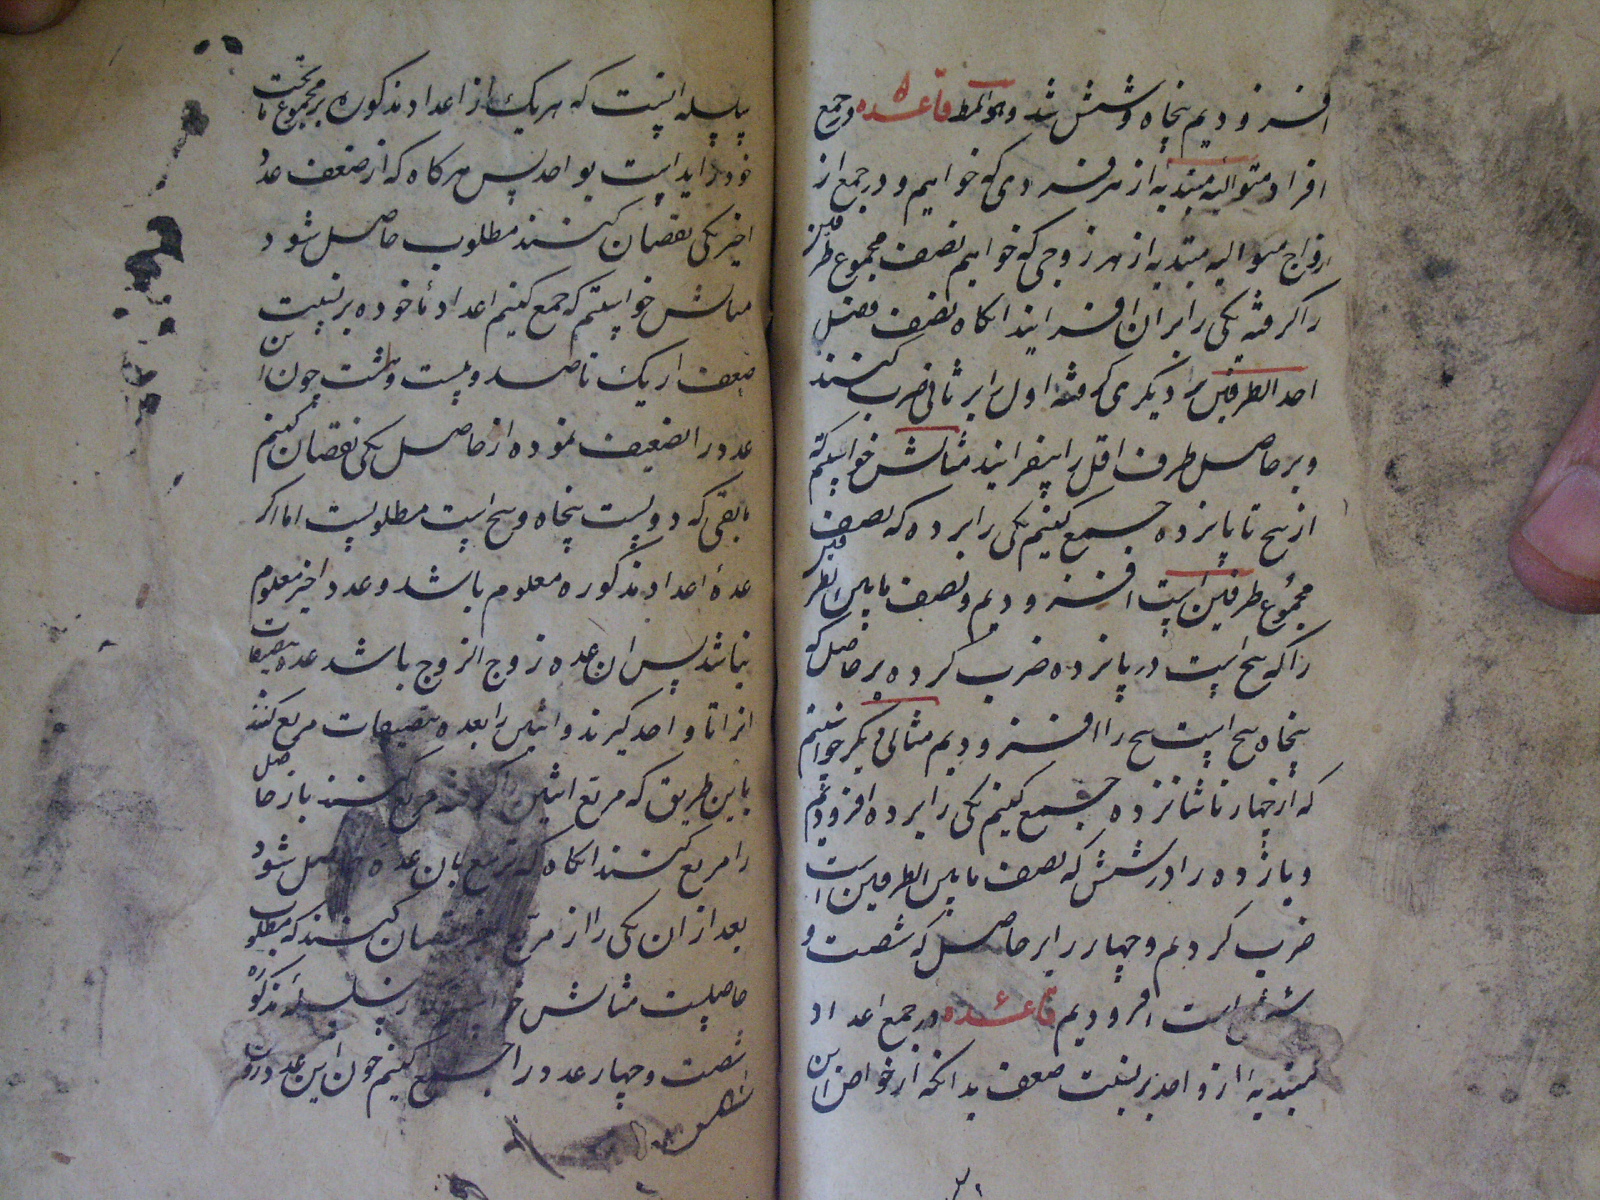 افزودیم پنجاه و شش شد وهوالمط قاعده در جمع
افراد متوالیه مبتدیه از هر فردی که خواهیم و در جمع از
ازواج متوالیه مبتدیه از هر زوجی که خواهیم نصف مجموع طرفین
را گرفته یکی را بران افزایند انکاه نصف فضل
احد الطرفین بر دیگری گرفته اول را بر ثانی ضرب کنند
و بر حاصل طرف اقل را بیفزایند مثالش خواستیم که
از پنج تا پانزده جمع کنیم یکی را بر ده که نصف
مجموع طرفین است افزودیم و نصف ما بین الطرفین
را که پنج است در یازده ضرب کرده بر حاصل که
پنجاه پنج است پنج را افزودیم مثالی دیگر خواستیم
که از چهار تا شانزده جمع کنیم یکی را بر ده افزودیم
و یازده را در شش که نصف ما بین الطرفین است
ضرب کردیم و چهار را بر حاصل که شصت و
شش است افزودیم قاعده در جمع اعداد
مبتدیه از واحد بر نسبت ضعف بدانکه از خواص این
سلسله اینست که هر یک از اعداد مذکوره بر مجموع ما تحت
خود زاید است بواحد پس هر کاه که از ضعف عدد
اخیر یکی نقصان کنند مطلوب حاصل شود
مثالش خواستم که جمع کنیم اعداد مأخوذه بر نسبت
ضعف از یک تا صد و بیست و هشت چون این
عدد را تضعیف نموده از حاصل یکی نقصان کنیم
مابقی که دویست پنجاه و پنج است مطلوبست اما اگر
عدهٔ اعداد مذکوره معلوم باشد و عدد اخیر معلوم
نباشد پس ان عده زوج الزوج باشد عده تنصیفات
انرا تا واحد گیرند و اثنین را بعده تنصیفات مربع کنند
باین طریق که مربع اثنین را گرفته مربع کنند باز حاصل
را مربع کنند انکاه که تربیع بان عده حاصل شود
بعد از ان یکی را از مربع اخیر نقصان کنند که مطلوب
حاصلست مثالش خواستیم در سلسلهٔ مذکوره
شصت و چهار عدد را جمع کنیم چون این عدد زوج